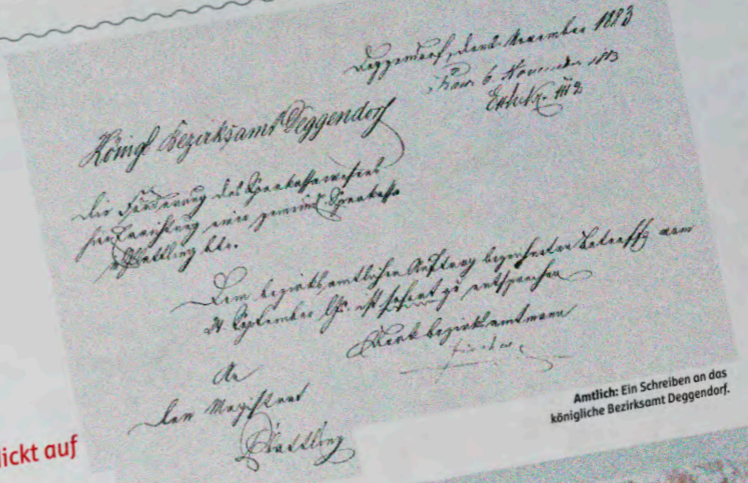 Deggendorf, den 2. November 1883
Präs. 6. November 1883
Königl Bezirksamt Deggendorf
Die Förderung des Sparkassawesens
hier Errichtung einer gemeindl. Sparkasse
Plattling btr.
Dem bezirksamtlichen Auftrag bezeichneten Betreffs vom
21. September lfd. ist sofort zu entsprechen
Der k. Bezirksamtmann
An
den Magistrat
Plattling
Amtlich: Ein Schreiben an das
königliche Bezirksamt Deggendorf.
lickt auf